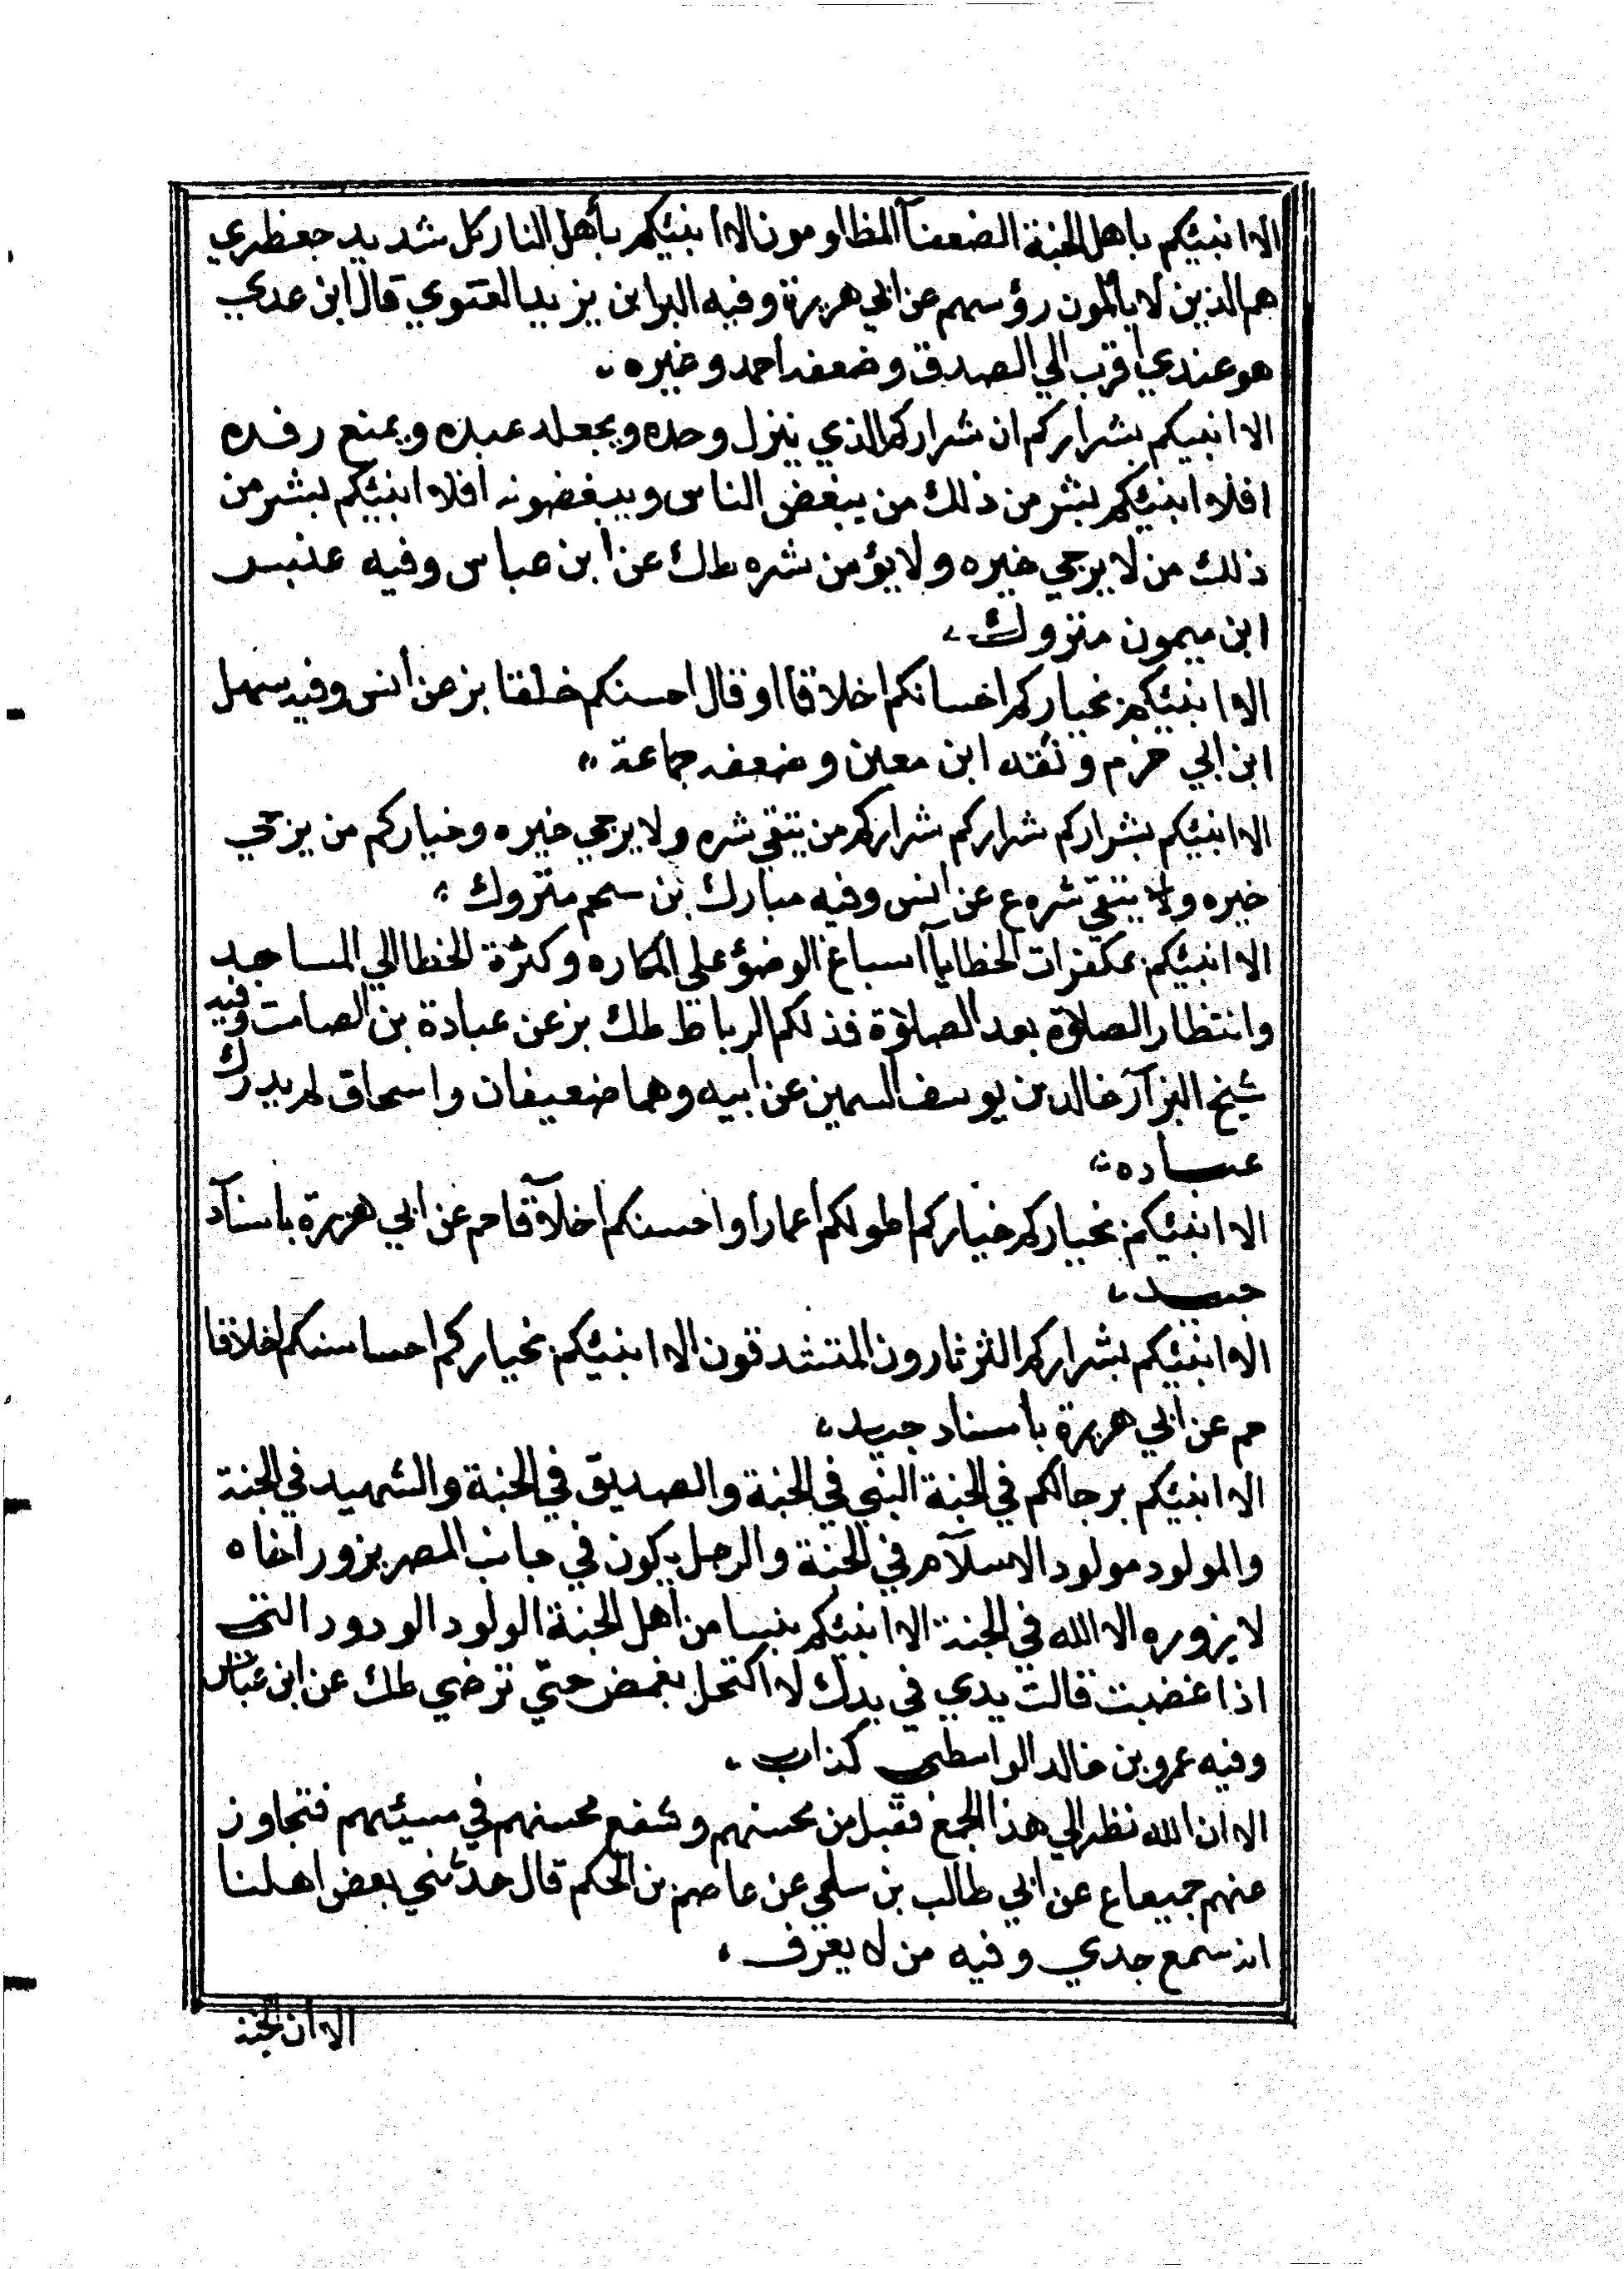 الا انبئكم باهل الجنة الضعفآ المظلومون الا انبئكم بأهل النار كل شديد جعظري
هم الذين لا يألمون رؤسهم عن ابي هريرة وفيه البرا بن يزيد الغنوي قال ابن عدي
هو عندي اقرب الي الصدق وضعفه احمد وغيره
الا انبيكم بشراركم ان شراركم الذي ينزل وحده ويجعلد عبده ويمنع رفده
افلا انبئكم بشر من ذلك من يبغض الناس ويبغضونه افلا انبئكم بشر من
ذلك من لا يرجي خيره ولا يؤمن شره طك عن ابن عباس وفيه عنبس
ابن ميمون متروك
الا انبئكم بخياركم احسانكم اخلاقا او قال احسنكم خلقا بز عن أنس وفيه سهل
ابن ابي حزم وثقه ابن معين وضعفه جماعة
الا انبئكم بشراركم شراركم شراركم من يتقي شره ولا يرجي خيره وخياركم من يرجي
خيره ولا يتقي شره ع عن انس وفيه مبارك بن سحيم متروك
الا انبئكم بمكفرات الخطايآ اسباغ الوضؤ علي المكاره وكثرة الخطا الي المساجد
وانتظار الصلاة بعد الصلاة فذلكم الرباط طك بز عن عبادة بن الصامت وفيه
شيخ البزآر خالد بن يوسف السمين عن ابيه وهما ضعيفان واسحاق لم يدرك
عباده
الا انبئكم بخياركم خياركم اطولكم أعمارا واحسنكم اخلآقا حم عن ابي هريرة باسنآد
جيد
الا انبئكم بشراركم الثرثارون المتشدقون الا انبئكم بخياركم احساسنكم اخلاقا
حم عن ابي هريرة بأسناد جيد
الا انبئكم برجالكم في الجنة النبي في الجنة والصديق في الجنة والشهيد في الجنة
والمولود مولود الاسلآم في الجنة والرجل يكون في جانب المصر يزور اخاه
لا يزوره الا الله في الجنة الا انبئكم بنسا من أهل الجنة الولود الودود التى
اذا غضبت قالت يدي في يدك لا اكتحل بغمض حتي ترضي طك عن ابن عباس
وفيه عمرو بن خالد الواسطي كذاب
الا ان الله نظر الي هذا الجمع فقبل من محسنهم وشفع محسنهم في مسيئهم فتجاوز
عنهم جميعا ع عن ابي طالب بن سلمي عن عاصم بن الحكم قال حدثني بعض اهلنا
انه سمع جدي وفيه من لا يعرف
الا ان الجنة